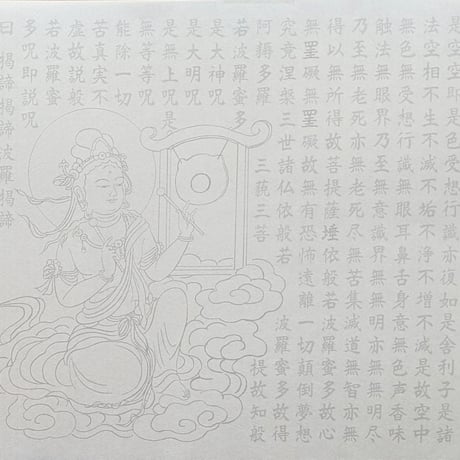 是空空即是色受想行識亦復如是舎利子是諸
法空相不生不滅不垢不浄不増不減是故空中
無色無受想行識無眼耳鼻舌身意無色声香味
触法無眼界乃至無意識界無無明亦無無明尽
乃至無老死亦無老死尽無苦集滅道無智亦無
得以無所得故菩提薩埵依般若波羅蜜多故心
無罣礙無罣礙故無有恐怖遠離一切顛倒夢想
究竟涅槃三世諸仏依般若 波羅蜜多故得
阿耨多羅 三藐三菩 提故知般
若波羅蜜多
是大神呪
是大明呪
是無上呪是
無等等呪
能除一切
苦真実不
虚故説般
若波羅蜜
多呪即説呪
曰 揭諦揭諦波羅揭諦